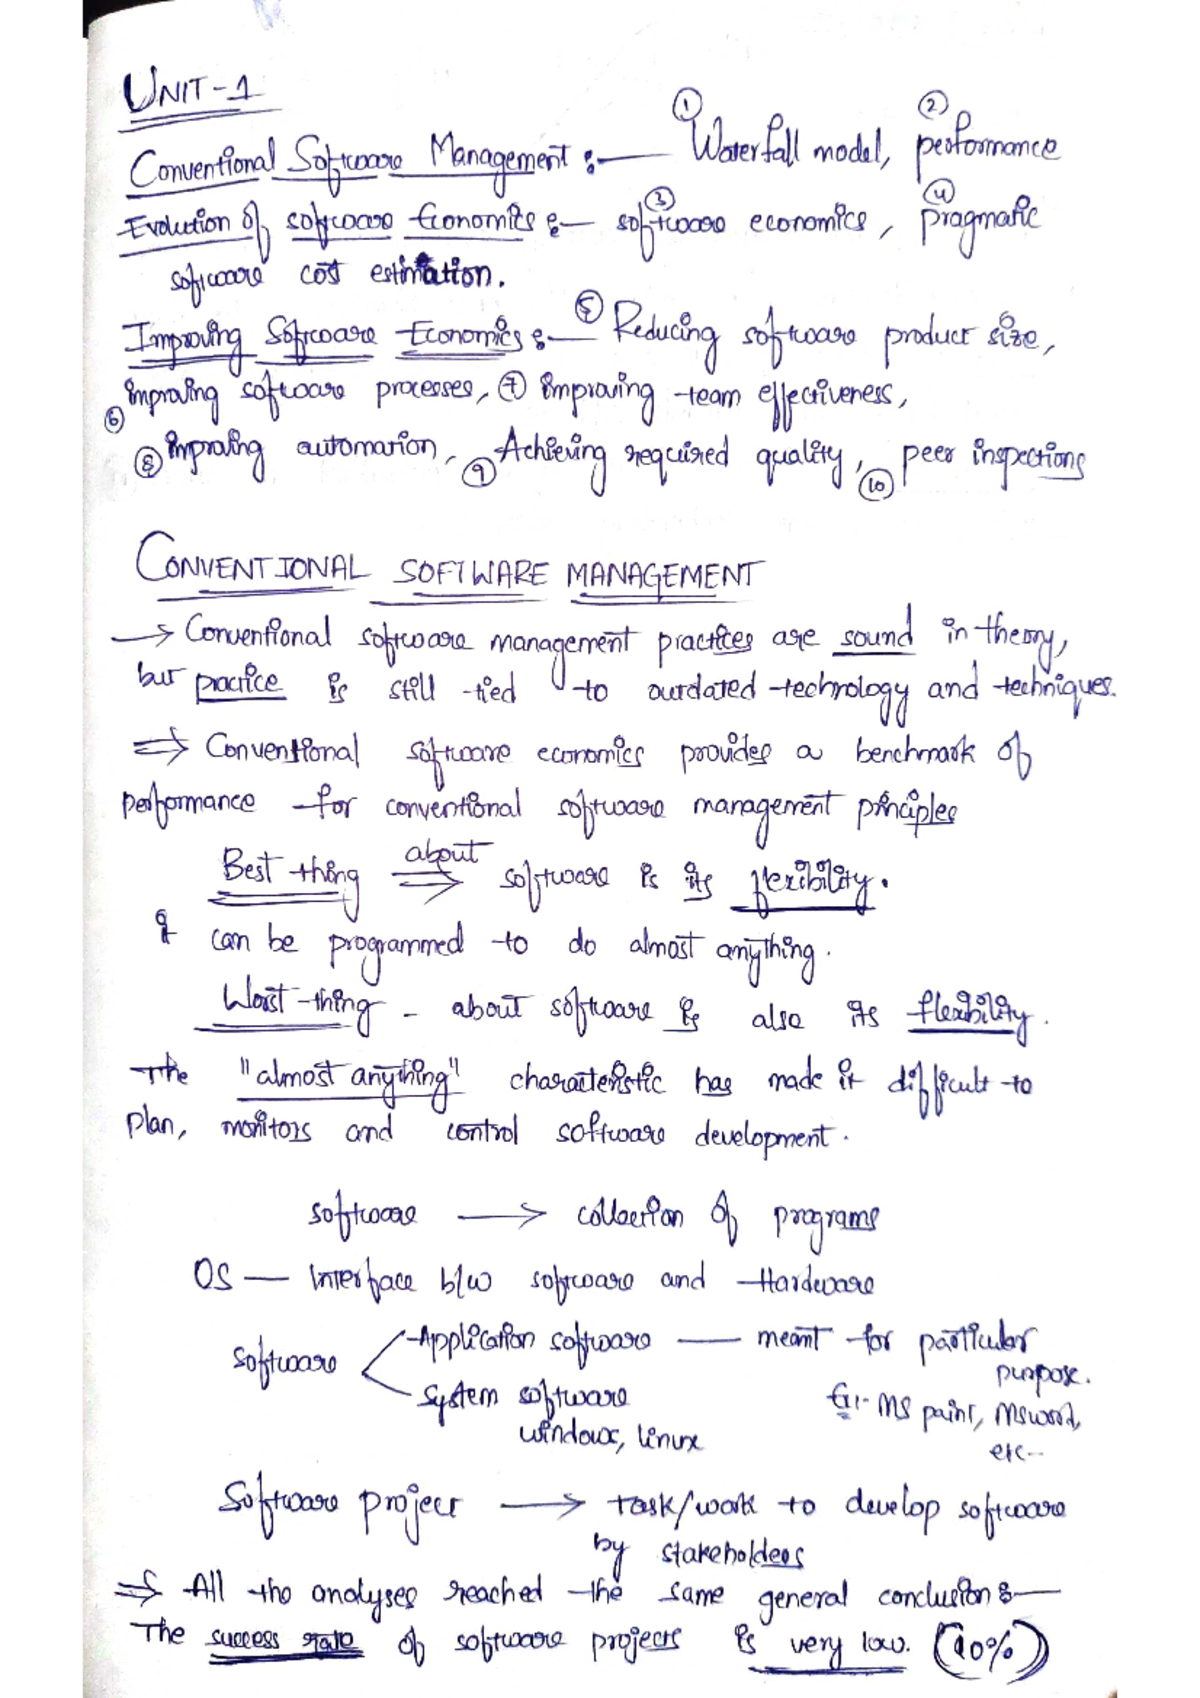 UNIT-1
Conventional Software Management :— ① Waterfall model, ② performance
Evolution of software Economics :— ③ software economics, ④ pragmatic
software cost estimation.
Improving Software Economics :— ⑤ Reducing software product size,
⑥ improving software processes, ⑦ improving team effectiveness,
⑧ improving automation, ⑨ Achieving required quality, ⑩ peer inspections
CONVENTIONAL SOFTWARE MANAGEMENT
→ Conventional software management practices are sound in theory,
but practice is still tied to outdated technology and techniques.
⇒ Conventional software economics provides a benchmark of
performance for conventional software management principles
Best thing about ⇒ software is its flexibility.
It can be programmed to do almost anything.
Worst thing - about software is also its flexibility.
The "almost anything" characteristic has made it difficult to
plan, monitors and control software development.
software → collection of programs
OS — Interface b/w software and Hardware
software < Application software — meant for particular purpose.
System software Ex:- MS paint, MS word,
windows, linux etc--
Software project → task/work to develop software
by stakeholders
⇒ All the analyses reached the same general conclusion :—
The success rate of software projects is very low. (10%)